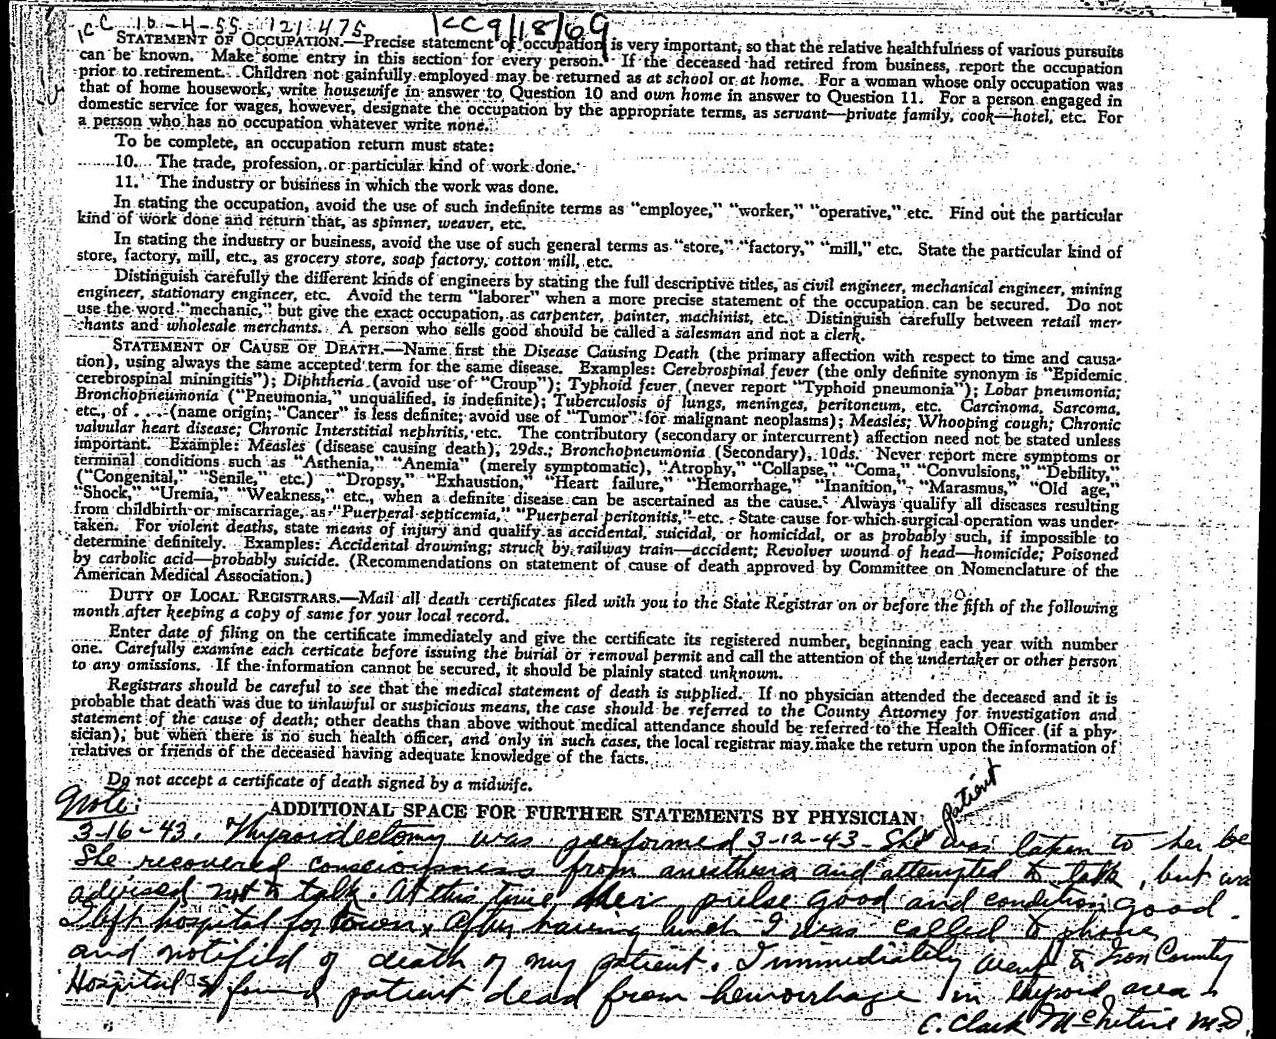 KC 10-4-55 121475 KC 9/18/69
STATEMENT OF OCCUPATION.—Precise statement of occupation is very important, so that the relative healthfulness of various pursuits
can be known. Make some entry in this section for every person. If the deceased had retired from business, report the occupation
prior to retirement. Children not gainfully employed may be returned as at school or at home. For a woman whose only occupation was
that of home housework, write housewife in answer to Question 10 and own home in answer to Question 11. For a person engaged in
domestic service for wages, however, designate the occupation by the appropriate terms, as servant—private family, cook—hotel, etc. For
a person who has no occupation whatever write none.
To be complete, an occupation return must state:
10. The trade, profession, or particular kind of work done.
11. The industry or business in which the work was done.
In stating the occupation, avoid the use of such indefinite terms as "employee," "worker," "operative," etc. Find out the particular
kind of work done and return that, as spinner, weaver, etc.
In stating the industry or business, avoid the use of such general terms as "store," "factory," "mill," etc. State the particular kind of
store, factory, mill, etc., as grocery store, soap factory, cotton mill, etc.
Distinguish carefully the different kinds of engineers by stating the full descriptive titles, as civil engineer, mechanical engineer, mining
engineer, stationary engineer, etc. Avoid the term "laborer" when a more precise statement of the occupation can be secured. Do not
use the word "mechanic," but give the exact occupation, as carpenter, painter, machinist, etc. Distinguish carefully between retail mer-
chants and wholesale merchants. A person who sells good should be called a salesman and not a clerk.
STATEMENT OF CAUSE OF DEATH.—Name first the Disease Causing Death (the primary affection with respect to time and causa-
tion), using always the same accepted term for the same disease. Examples: Cerebrospinal fever (the only definite synonym is "Epidemic
cerebrospinal miningitis"); Diphtheria (avoid use of "Croup"); Typhoid fever (never report "Typhoid pneumonia"); Lobar pneumonia;
Bronchopneumonia ("Pneumonia," unqualified, is indefinite); Tuberculosis of lungs, meninges, peritoneum, etc. Carcinoma, Sarcoma,
etc., of . . . (name origin; "Cancer" is less definite; avoid use of "Tumor" for malignant neoplasms); Measles; Whooping cough; Chronic
valvular heart disease; Chronic Interstitial nephritis, etc. The contributory (secondary or intercurrent) affection need not be stated unless
important. Example: Measles (disease causing death), 29ds.; Bronchopneumonia (Secondary), 10ds. Never report mere symptoms or
terminal conditions such as "Asthenia," "Anemia" (merely symptomatic), "Atrophy," "Collapse," "Coma," "Convulsions," "Debility,"
("Congenital," "Senile," etc.) "Dropsy," "Exhaustion," "Heart failure," "Hemorrhage," "Inanition," "Marasmus," "Old age,"
"Shock," "Uremia," "Weakness," etc., when a definite disease can be ascertained as the cause. Always qualify all diseases resulting
from childbirth or miscarriage, as "Puerperal septicemia," "Puerperal peritonitis," etc. State cause for which surgical operation was under-
taken. For violent deaths, state means of injury and qualify as accidental, suicidal, or homicidal, or as probably such, if impossible to
determine definitely. Examples: Accidental drowning; struck by railway train—accident; Revolver wound of head—homicide; Poisoned
by carbolic acid—probably suicide. (Recommendations on statement of cause of death approved by Committee on Nomenclature of the
American Medical Association.)
DUTY OF LOCAL REGISTRARS.—Mail all death certificates filed with you to the State Registrar on or before the fifth of the following
month after keeping a copy of same for your local record.
Enter date of filing on the certificate immediately and give the certificate its registered number, beginning each year with number
one. Carefully examine each certicate before issuing the burial or removal permit and call the attention of the undertaker or other person
to any omissions. If the information cannot be secured, it should be plainly stated unknown.
Registrars should be careful to see that the medical statement of death is supplied. If no physician attended the deceased and it is
probable that death was due to unlawful or suspicious means, the case should be referred to the County Attorney for investigation and
statement of the cause of death; other deaths than above without medical attendance should be referred to the Health Officer (if a phy-
sician), but when there is no such health officer, and only in such cases, the local registrar may make the return upon the information of
relatives or friends of the deceased having adequate knowledge of the facts.
Do not accept a certificate of death signed by a midwife.
Note: ADDITIONAL SPACE FOR FURTHER STATEMENTS BY PHYSICIAN patient
3-16-43. Thyroidectomy was performed 3-12-43. She was taken to her be
She recovered consciousness from anesthesia and attempted to talk, but was
advised not to talk. At this time her pulse good and condition good.
I left hospital for town, after having lunch I was called to phone
and notified of death of my patient. I immediately went to Iron County
Hospital & found patient dead from hemorrhage in thyroid area.
C. Clark McIntire M.D.